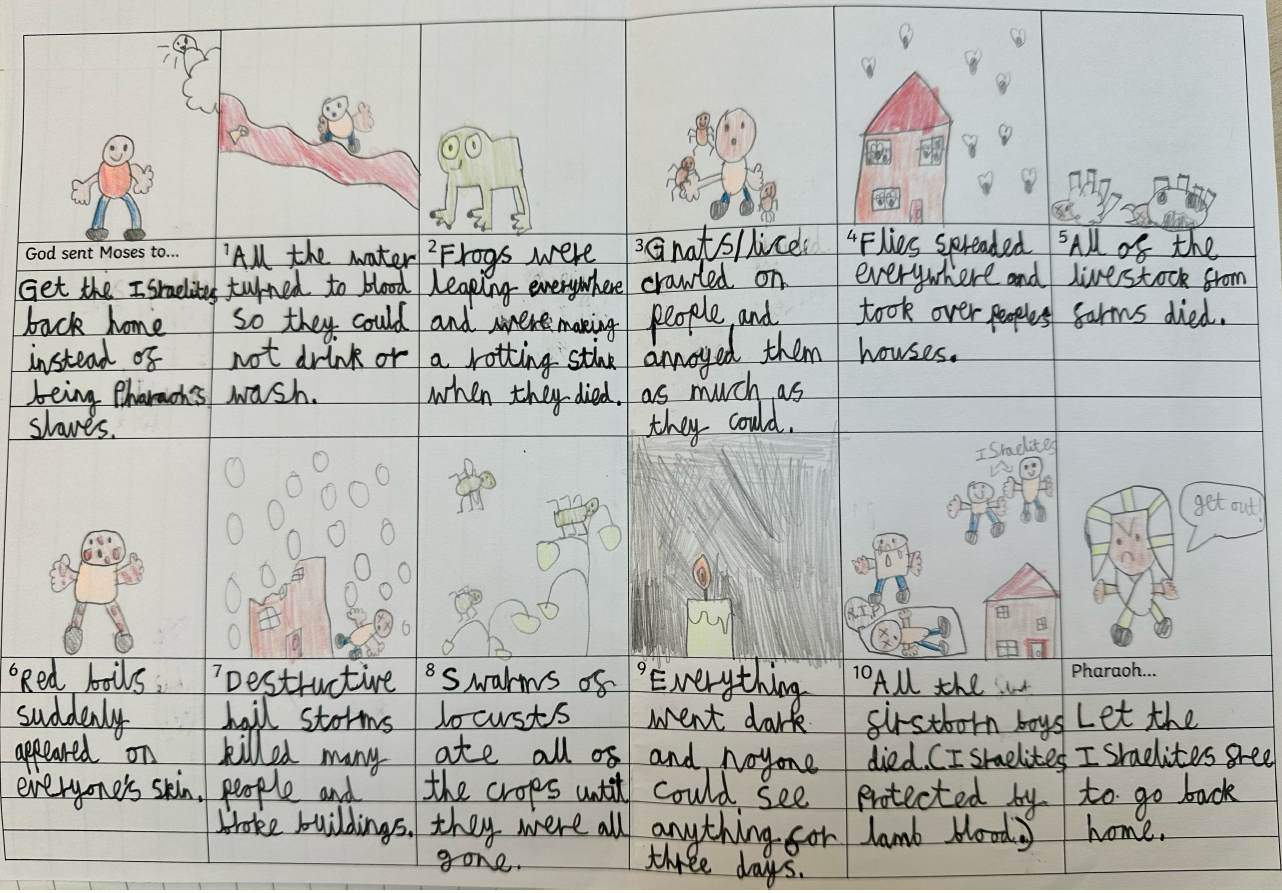 God sent Moses to...
Get the Israelites
back home
instead of
being Pharaoh's
slaves.
1 All the water
turned to blood
so they could
not drink or
wash.
2 Frogs were
leaping everywhere
and were making
a rotting stink
when they died.
3 Gnats/lice
crawled on
people and
annoyed them
as much as
they could.
4 Flies spreaded
everywhere and
took over peoples
houses.
5 All of the
livestock from
farms died.
6 Red boils
suddenly
appeared on
everyone's skin.
7 Destructive
hail storms
killed many
people and
broke buildings.
8 Swarms of
locusts
ate all of
the crops until
they were all
gone.
9 Everything
went dark
and noyone
could see
anything for
three days.
Israelites
R.I.P
10 All the
firstborn boys
died. (Israelites
protected by
lamb blood.)
get out!
Pharaoh...
Let the
Israelites free
to go back
home.